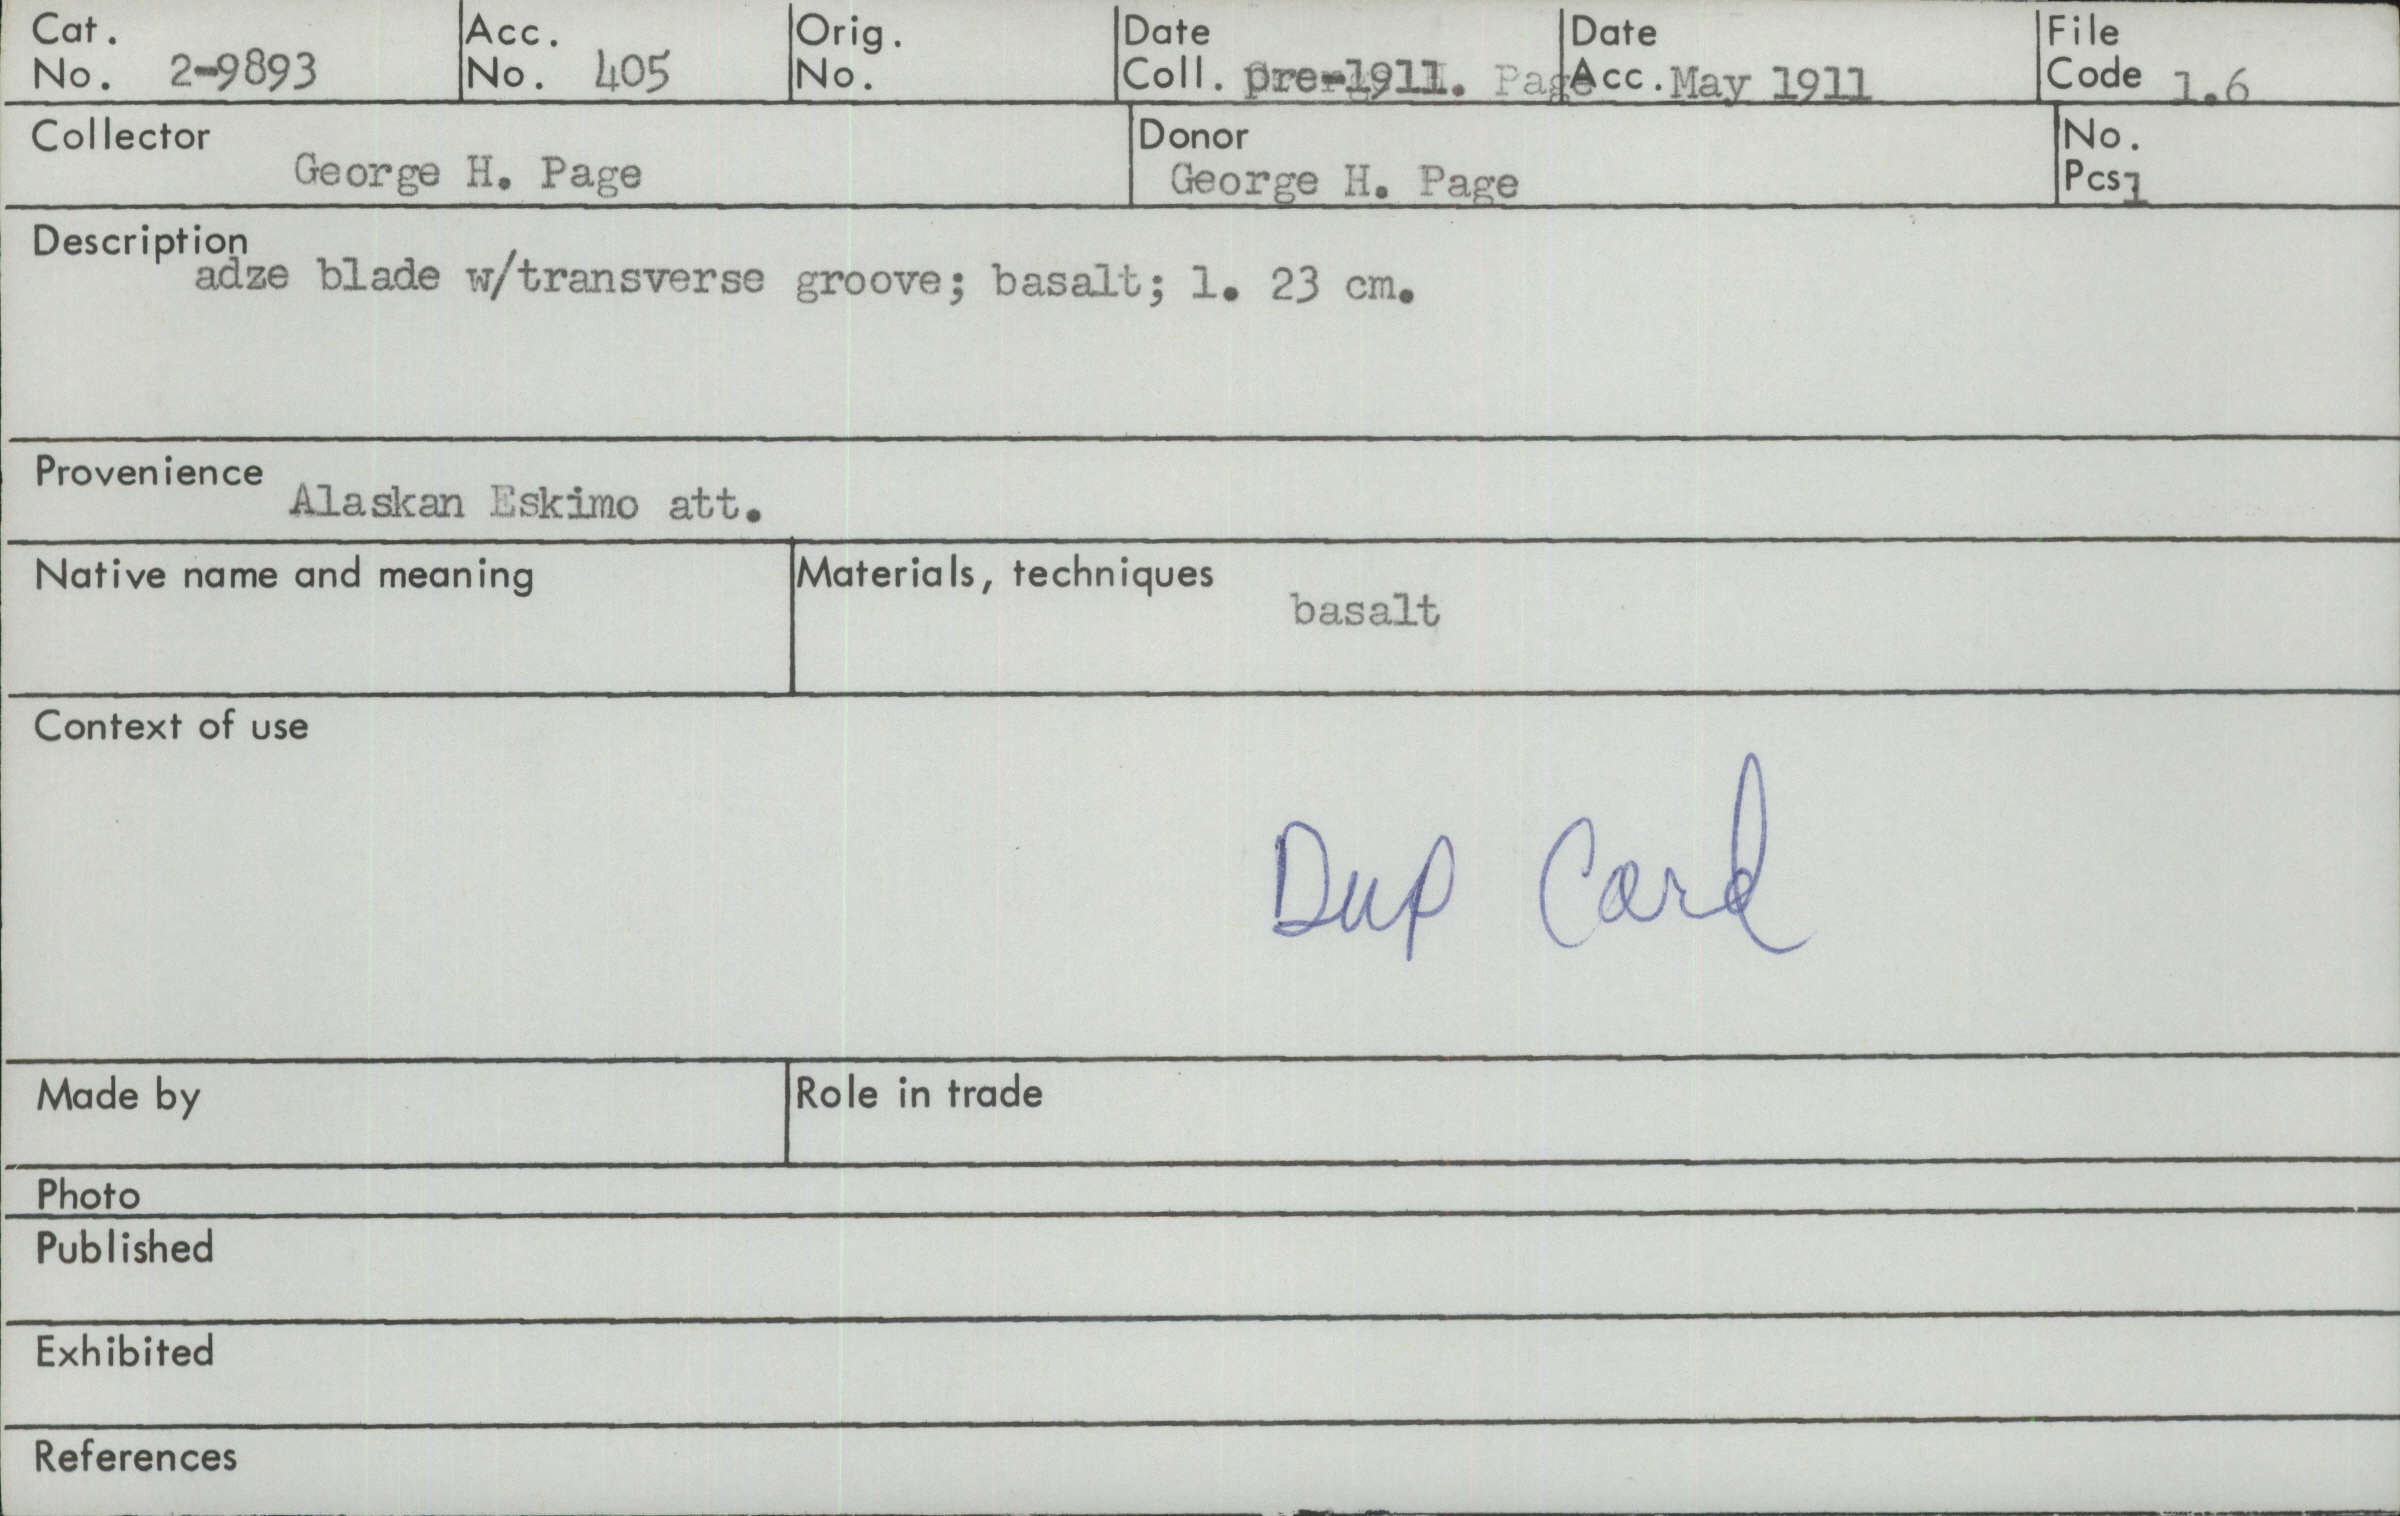 Cat. No. 2-9893 Acc. No. 405 Orig. No. Date Coll. pre-1911. Page Date Acc. May 1911 File Code 1.6
Collector George H. Page Donor George H. Page No. Pcs 1
Description
adze blade w/transverse groove; basalt; l. 23 cm.
Provenience Alaskan Eskimo att.
Native name and meaning Materials, techniques
basalt
Context of use
Dup Card
Made by Role in trade
Photo
Published
Exhibited
References